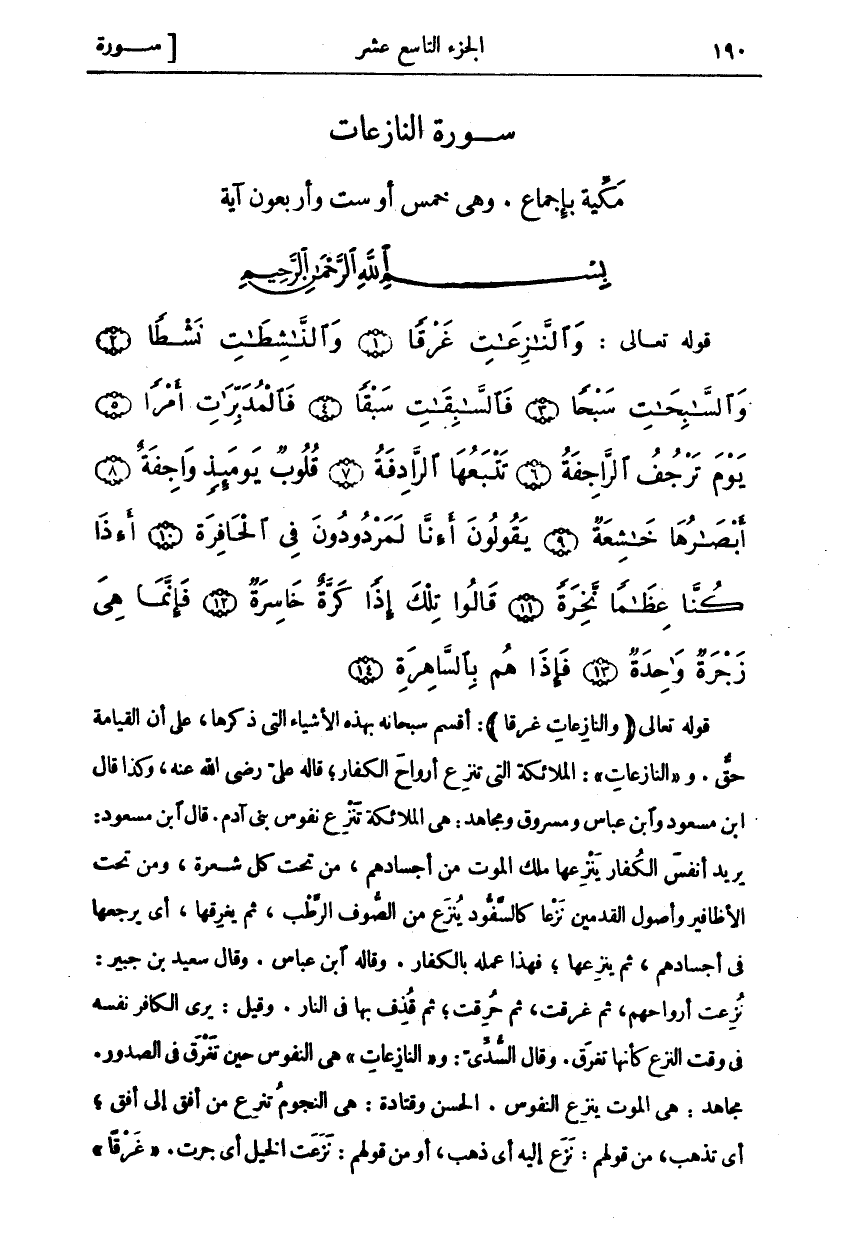 ١٩٠ الجزء التاسع عشر [ سـورة
سـورة النازعات
مَكِّية بإجماع . وهى خمس أو ست وأربعون آية
بِسْـمِ ٱللَّهِ ٱلرَّحْمَٰنِ ٱلرَّحِيمِ
قوله تعـالى : وَٱلنَّٰزِعَٰتِ غَرْقًا ﴿١﴾ وَٱلنَّٰشِطَٰتِ نَشْطًا ﴿٢﴾
وَٱلسَّٰبِحَٰتِ سَبْحًا ﴿٣﴾ فَٱلسَّٰبِقَٰتِ سَبْقًا ﴿٤﴾ فَٱلْمُدَبِّرَٰتِ أَمْرًا ﴿٥﴾
يَوْمَ تَرْجُفُ ٱلرَّاجِفَةُ ﴿٦﴾ تَتْبَعُهَا ٱلرَّادِفَةُ ﴿٧﴾ قُلُوبٌ يَوْمَئِذٍ وَاجِفَةٌ ﴿٨﴾
أَبْصَٰرُهَا خَٰشِعَةٌ ﴿٩﴾ يَقُولُونَ أَءِنَّا لَمَرْدُودُونَ فِى ٱلْحَافِرَةِ ﴿١٠﴾ أَءِذَا
كُنَّا عِظَٰمًا نَّخِرَةً ﴿١١﴾ قَالُوا تِلْكَ إِذًا كَرَّةٌ خَاسِرَةٌ ﴿١٢﴾ فَإِنَّمَا هِىَ
زَجْرَةٌ وَٰحِدَةٌ ﴿١٣﴾ فَإِذَا هُم بِٱلسَّاهِرَةِ ﴿١٤﴾
قوله تعالى ﴿ والنازِعاتِ غرقا ﴾ : أقسم سبحانه بهذه الأشياء التى ذكرها ، على أن القيامة
حقٌّ . و « النازعاتِ » : الملائكة التى تنزِع أرواحَ الكفار ؛ قاله علىّ رضى الله عنه ، وكذا قال
ابن مسعود وٱبن عباس ومسروق ومجاهد : هى الملائكة تَنْزِع نفوس بنى آدم . قال ٱبن مسعود :
يريد أنفسَ الكُفار يَنْزِعها ملك الموت من أجسادهم ، من تحت كل شـعرة ، ومن تحت
الأظافير وأصول القدمين نَزْعا كالسَّفُّود يُنْزَع من الصُّوف الرَّطْب ، ثم يغرقها ، أى يرجعها
فى أجسادهم ، ثم ينزعها ؛ فهذا عمله بالكفار . وقاله ٱبن عباس . وقال سعيد بن جبير :
نُزِعت أرواحهم ، ثم غرقت ، ثم حُرِقت ؛ ثم قُذِف بها فى النار . وقيل : يرى الكافر نفسه
فى وقت النزع كأنها تغرق . وقال السُّدّىّ : و « النازعاتِ » هى النفوس حين تَغْرَق فى الصدور .
مجاهد : هى الموت ينزِع النفوس . الحسن وقتادة : هى النجومُ تنزِع من أفق إلى أفق ؛
أى تذهب ، من قولهم : نَزَع إليه أى ذهب ، أو من قولهم : نَزَعَت الخيل أى جرت . « غَرْقًا »